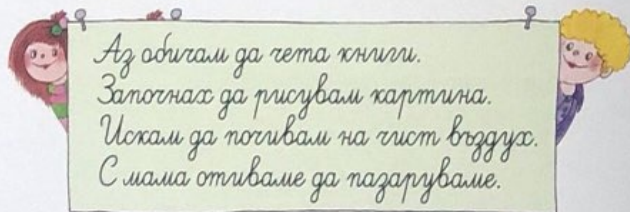 Аз обичам да чета книги.
Започнах да рисувам картина.
Искам да почивам на чист въздух.
С мама отиваме да пазаруваме.